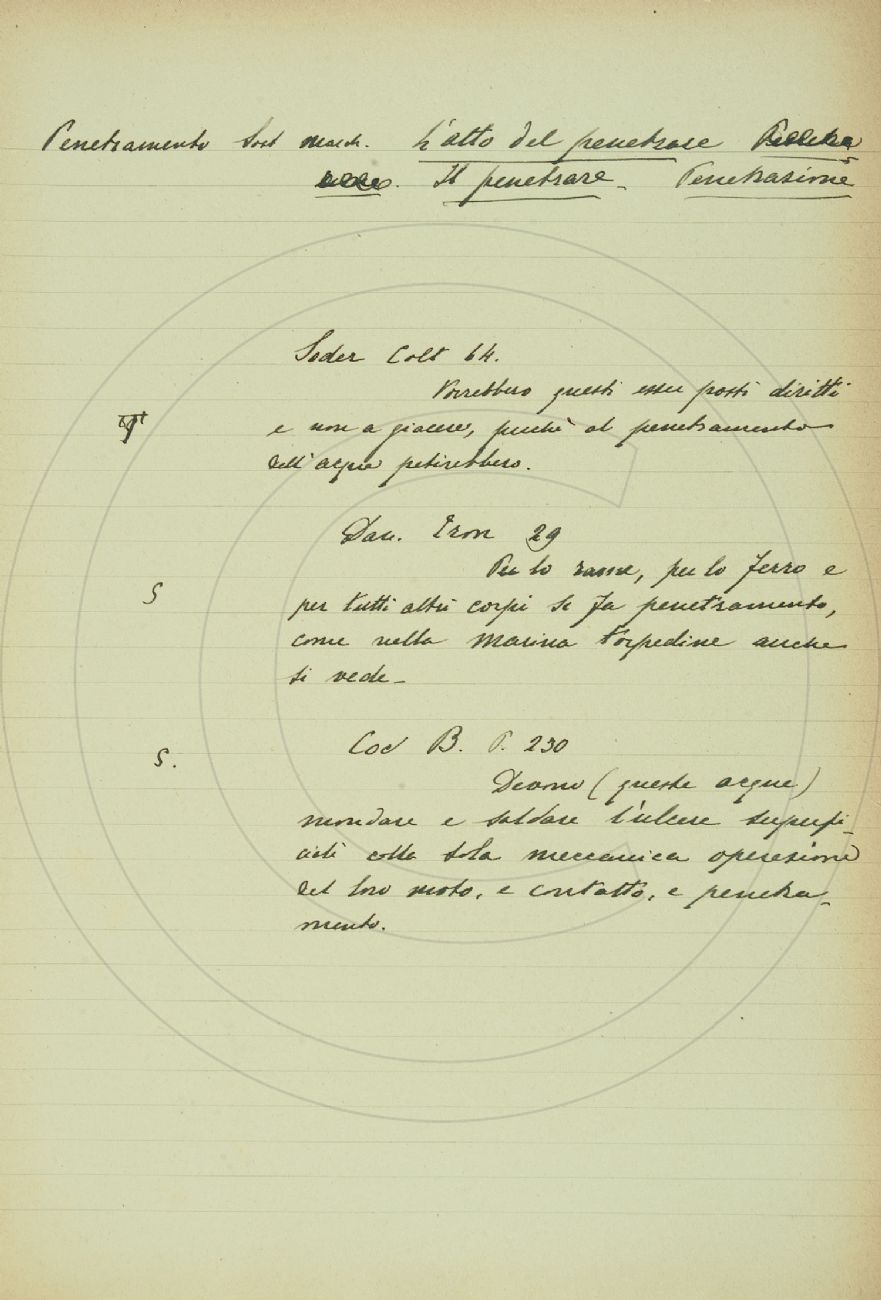 Penetramento Sost masch. L'atto del penetrare
Il penetrare - Penetrazione
Soder Colt 64.
Vorrebbero questi esser posti diritti
e non a giacere, perchè al penetramento
dell'acqua patirebbero.
Dan. Iron 29
Per lo rame, per lo ferro e
per tutti altri corpi si fa penetramento,
come nella marina torpedine anche
si vede -
S
Cod B. P. 230
S.
Devono (queste acque)
mondare e saldare l'ulcere superfi-
ciali colla sola meccanica operazione
del loro moto, e contatto, e penetra-
mento.